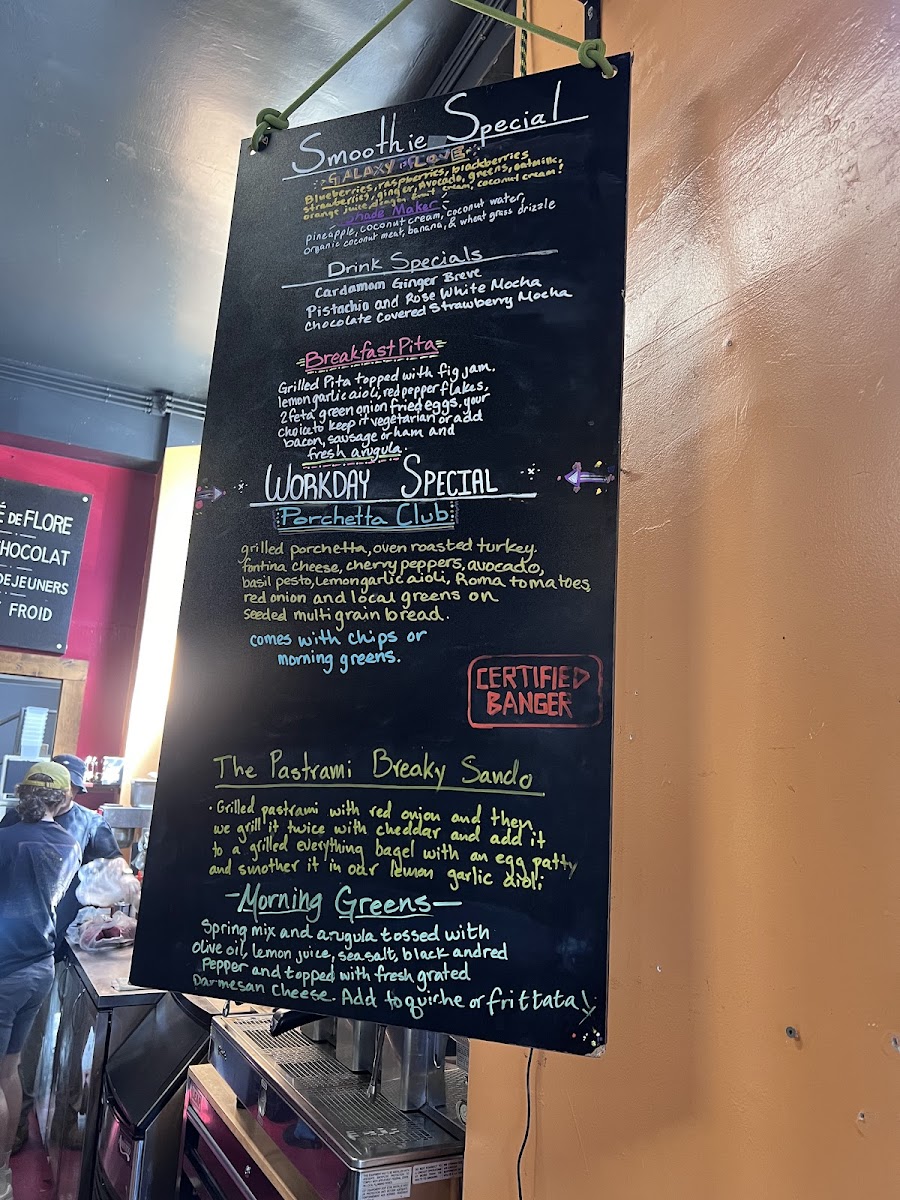 Smoothie Special
GALAXY LOVE
Blueberries, raspberries, blackberries
strawberries, ginger, Avocado, greens, oatmilk,
orange juice, dragon fruit cream, coconut cream!
Shade Maker
pineapple, coconut cream, coconut water,
organic coconut meat, banana, & wheat grass drizzle
Drink Specials
Cardamom Ginger Breve
Pistachio and Rose White Mocha
Chocolate Covered Strawberry Mocha
Breakfast Pita
Grilled Pita topped with fig jam,
lemon garlic aioli, red pepper flakes,
2 feta, green onion fried eggs, your
choice to keep it vegetarian or add
bacon, sausage or ham and
fresh arugula.
WORKDAY SPECIAL
Porchetta Club
grilled porchetta, oven roasted turkey.
fontina cheese, cherry peppers, avocado,
basil pesto, Lemon garlic aioli, Roma tomatoes,
red onion and local greens on
seeded multi grain bread.
comes with chips or
morning greens.
CERTIFIED
BANGER
The Pastrami Breaky Sando
• Grilled pastrami with red onion and then
we grill it twice with cheddar and add it
to a grilled everything bagel with an egg patty
and smother it in our lemon garlic aioli.
-Morning Greens-
Spring mix and arugula tossed with
olive oil, lemon juice, sea salt, black and red
Pepper and topped with fresh grated
parmesan cheese. Add to quiche or frittata!
É DE FLORE
CHOCOLAT
DEJEUNERS
FROID